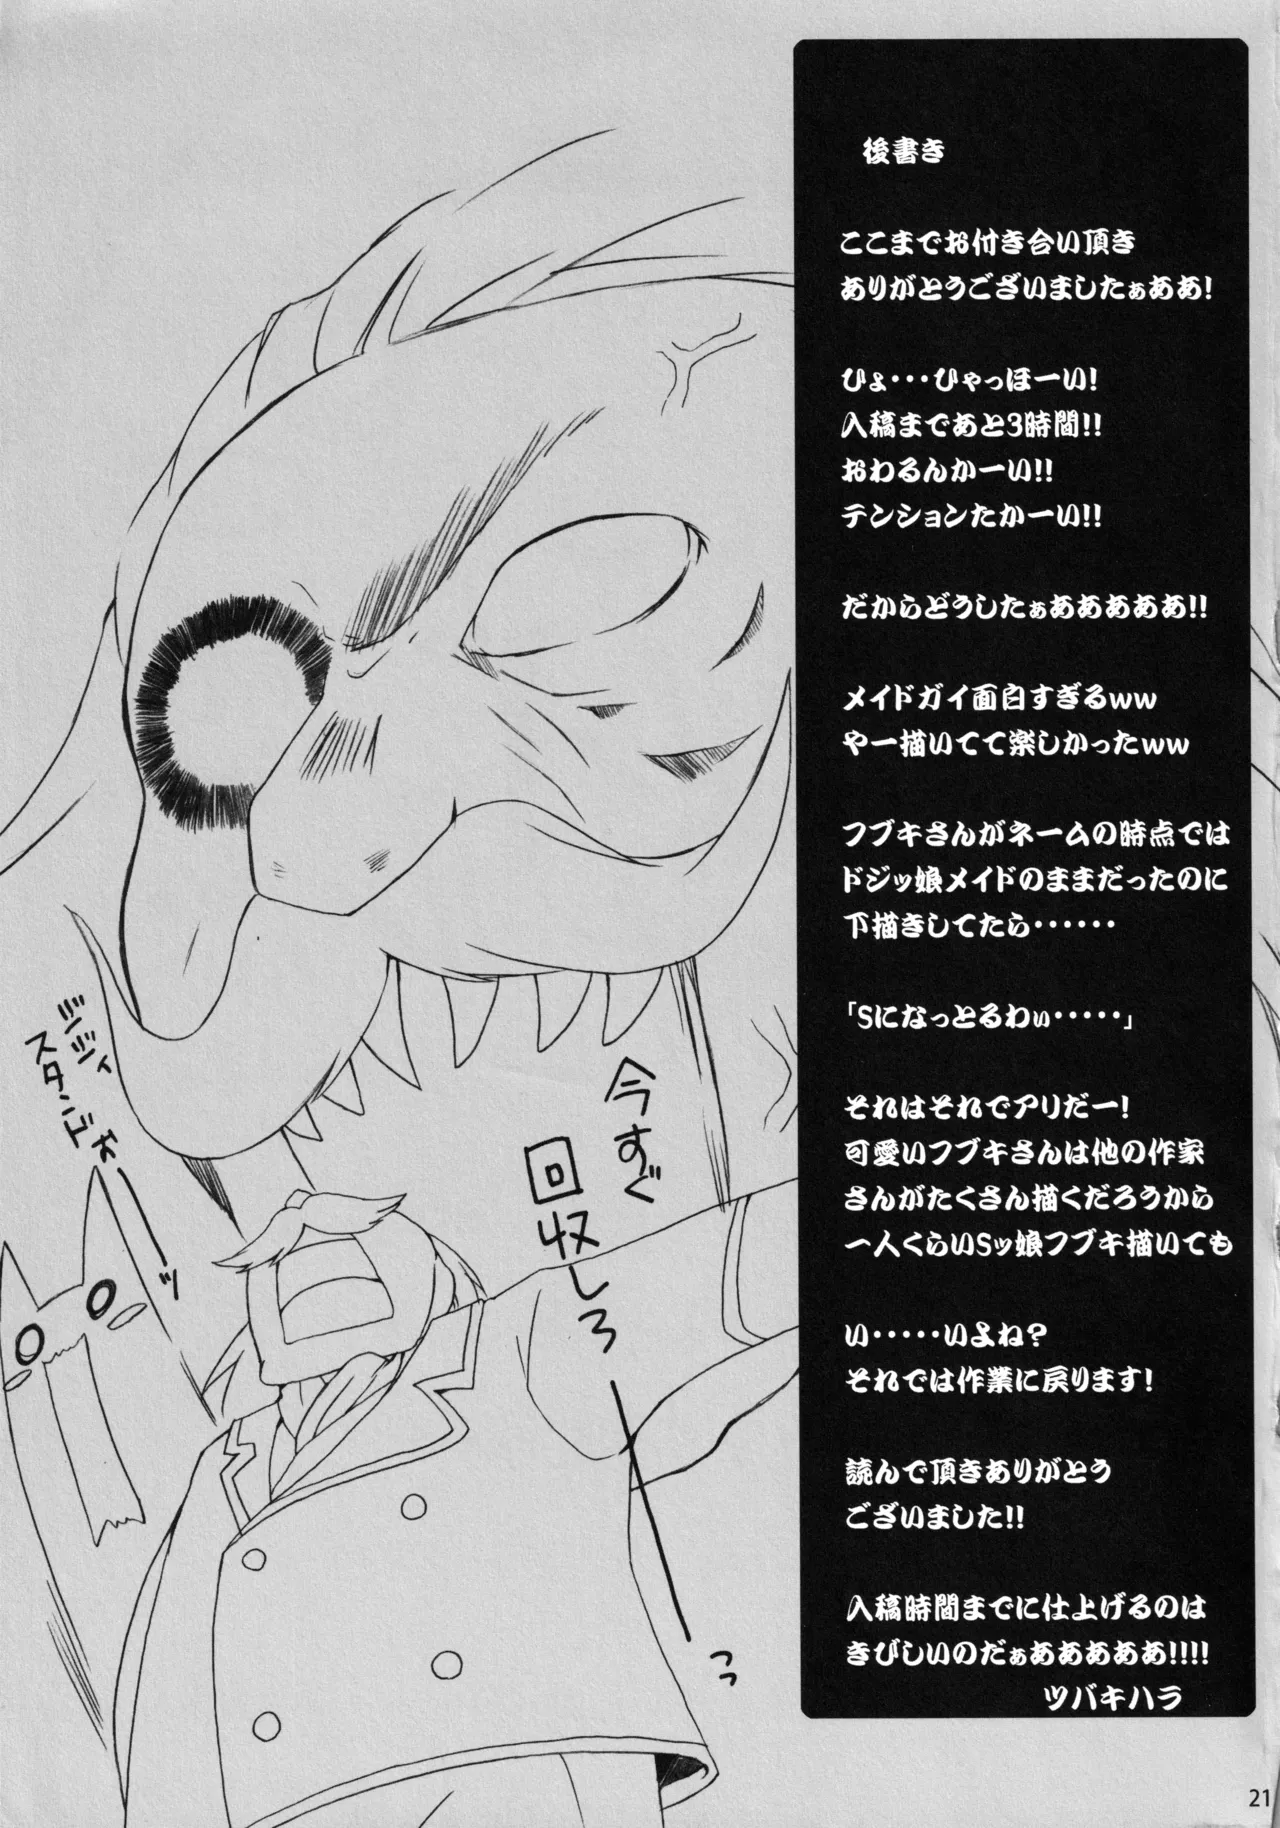 後書き
ここまでお付き合い頂き
ありがとうございましたぁああ!
ひょ･･･ひゃっほーい!
入稿まであと3時間!!
おわるんかーい!!
テンションたかーい!!
だからどうしたぁあああああ!!
メイドガイ面白すぎるww
やー描いてて楽しかったww
フブキさんがネームの時点では
ドジッ娘メイドのままだったのに
下描きしてたら･･････
「Sになっとるわぃ･････」
それはそれでアリだー!
可愛いフブキさんは他の作家
さんがたくさん描くだろうから
一人くらいSッ娘フブキ描いても
い･････いよね?
それでは作業に戻ります!
読んで頂きありがとう
ございました!!
入稿時間までに仕上げるのは
きびしいのだぁあああああ!!!!
ツバキハラ
今すぐ
回収しろ
ーーっっ
21